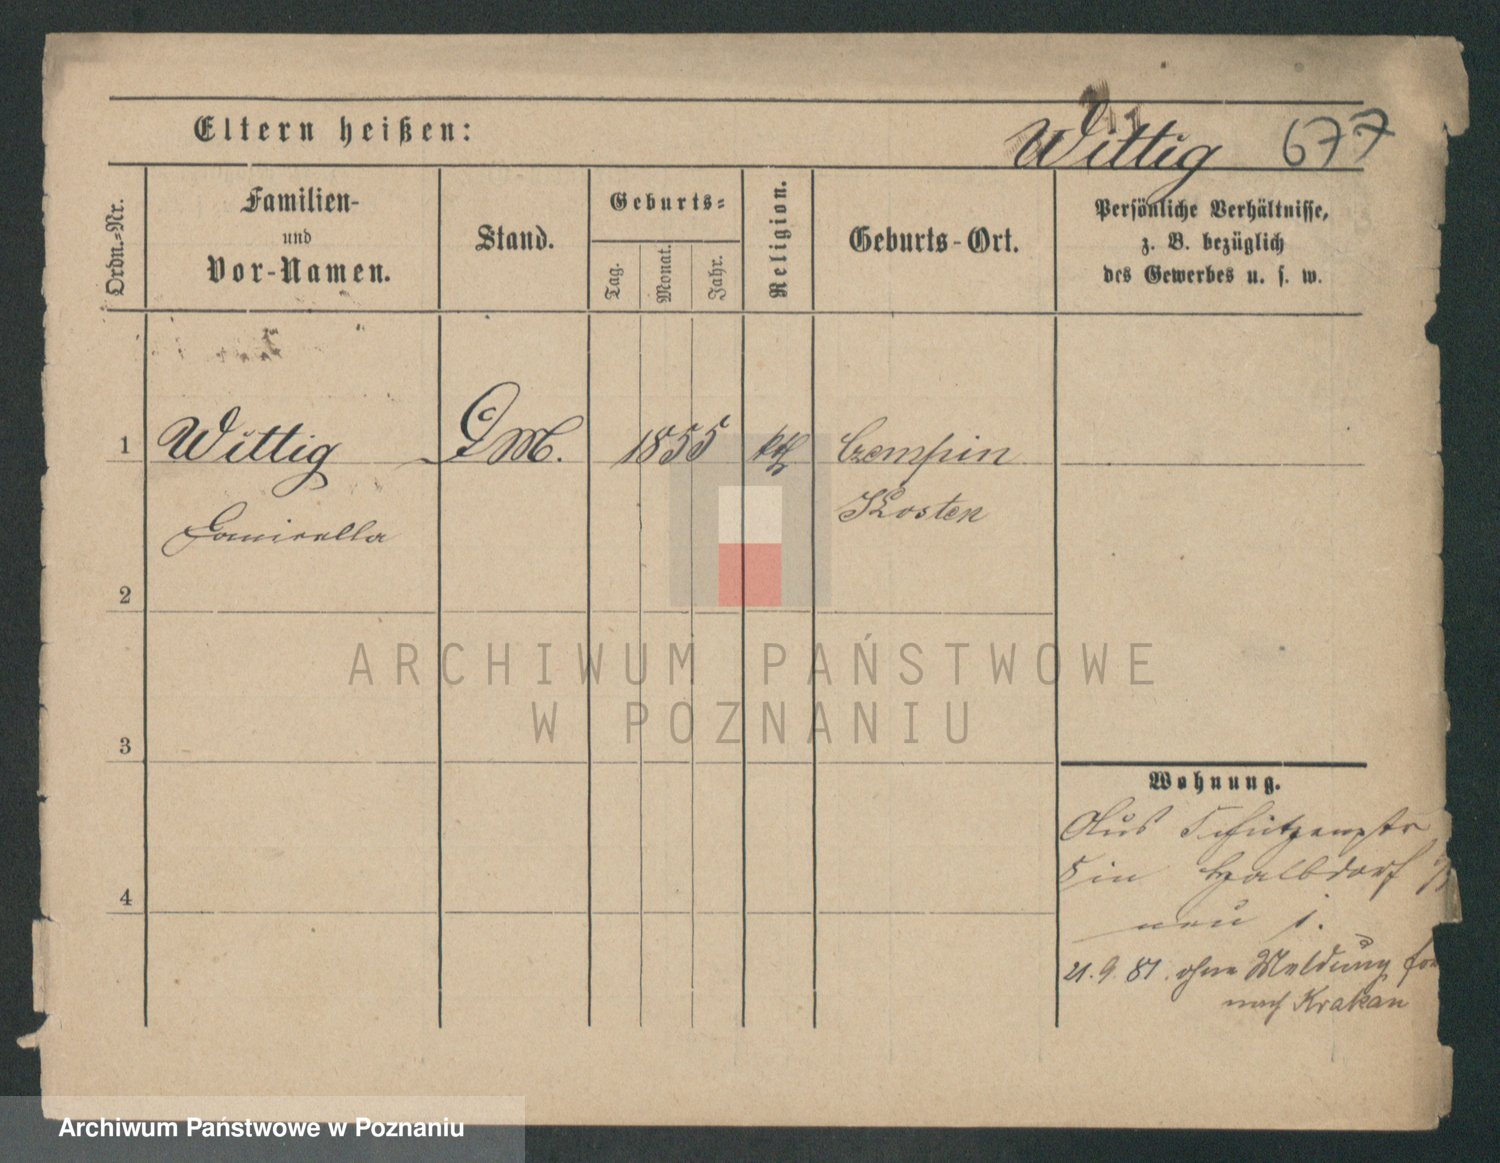 Eltern heißen:
Wittig 677
Ordn.-Nr.
Familien-
und
Vor-Namen.
Stand.
Geburts-
Tag.
Monat.
Jahr.
Religion.
Geburts-Ort.
Persönliche Verhältnisse,
z. B. bezüglich
des Gewerbes u. s. w.
1 Wittig D M. 1855 kth Czempin
Kosten
2
3
4
Wohnung.
Aus Schützenstr
in Halbdorf
neu 1.
21.9.81. ohne Meldung
nach Krakau
ARCHIWUM PAŃSTWOWE
W POZNANIU
Archiwum Państwowe w Poznaniu